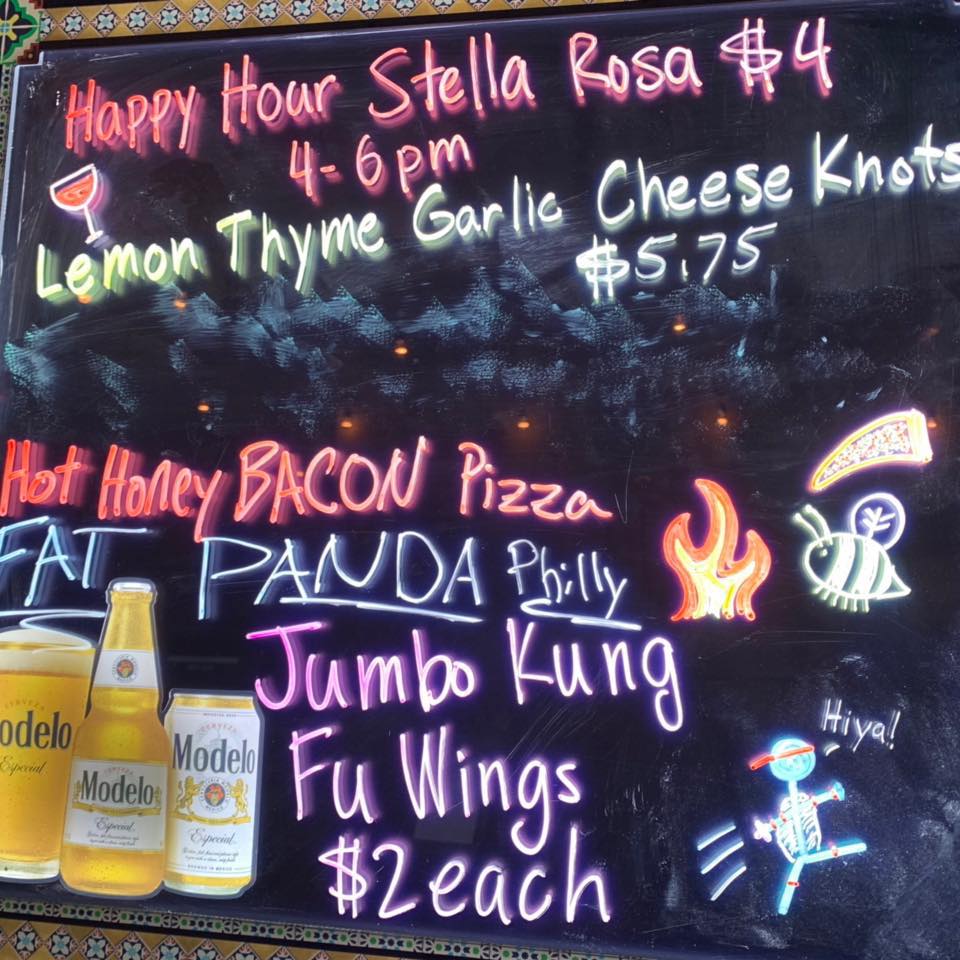 Happy Hour Stella Rosa $4
4-6pm
Lemon Thyme Garlic Cheese Knots
$5.75
Hot Honey BACON Pizza
FAT PANDA Philly
Jumbo Kung
Fu Wings
$2each
Hiya!
CERVEZA
odelo
Especial
Modelo
Especial
CERVEZA
Modelo
Especial